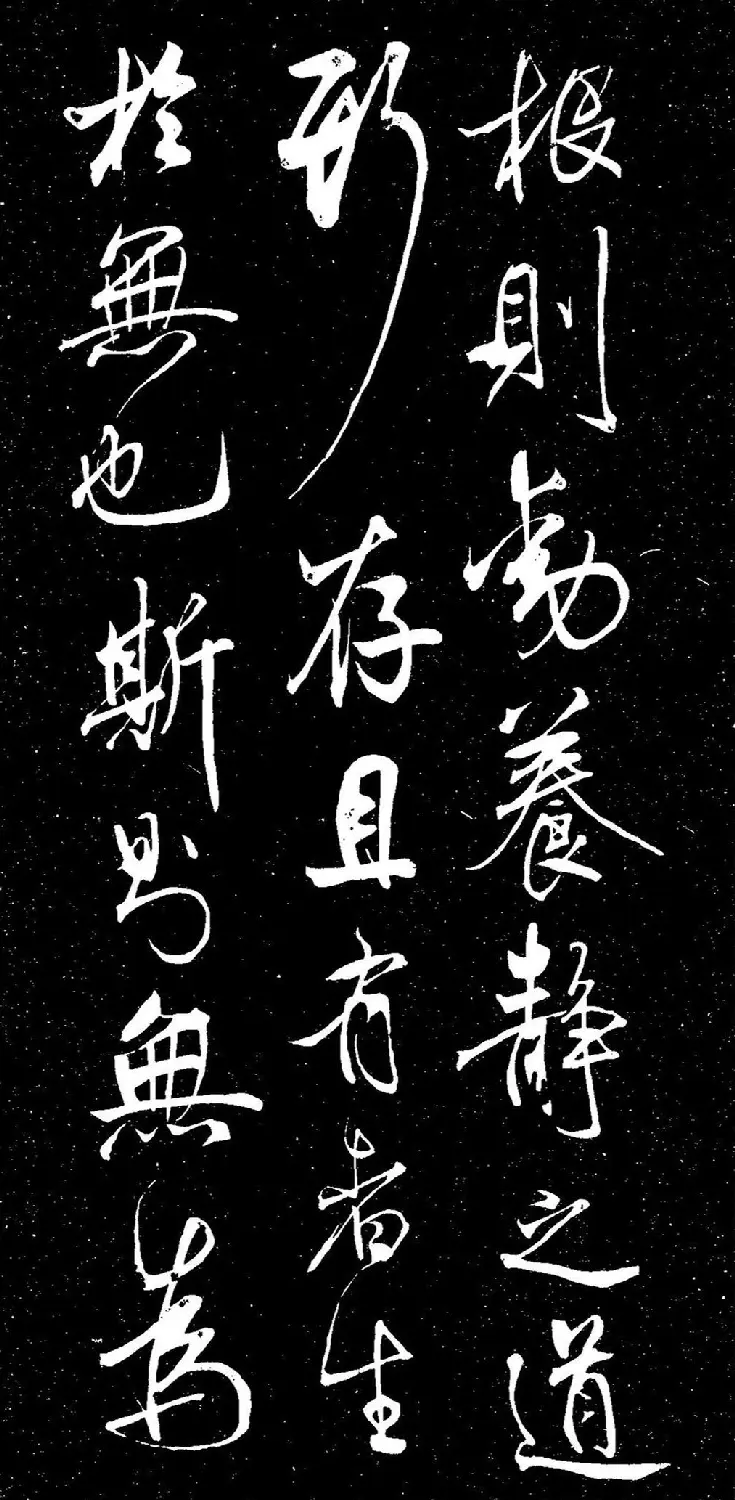 根則動養靜之道
形存且有者生
於無也斯則無為